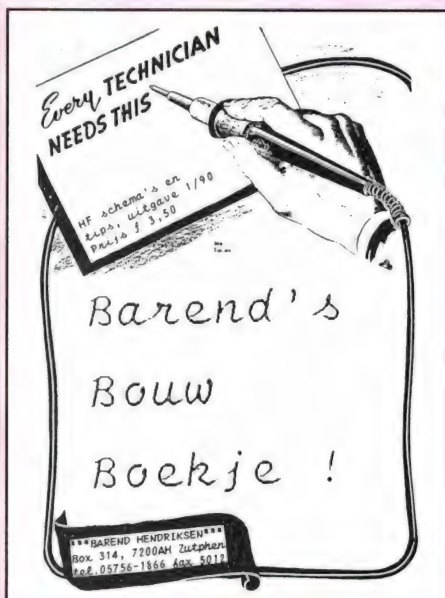 Every TECHNICIAN
NEEDS THIS
HF schema's en
tips, uitgave 1/90
Prijs f 3,50
Barend's
Bouw
Boekje !
***BAREND HENDRIKSEN***
Box 314, 7200AH Zutphen
tel.05756-1866 fax 5012